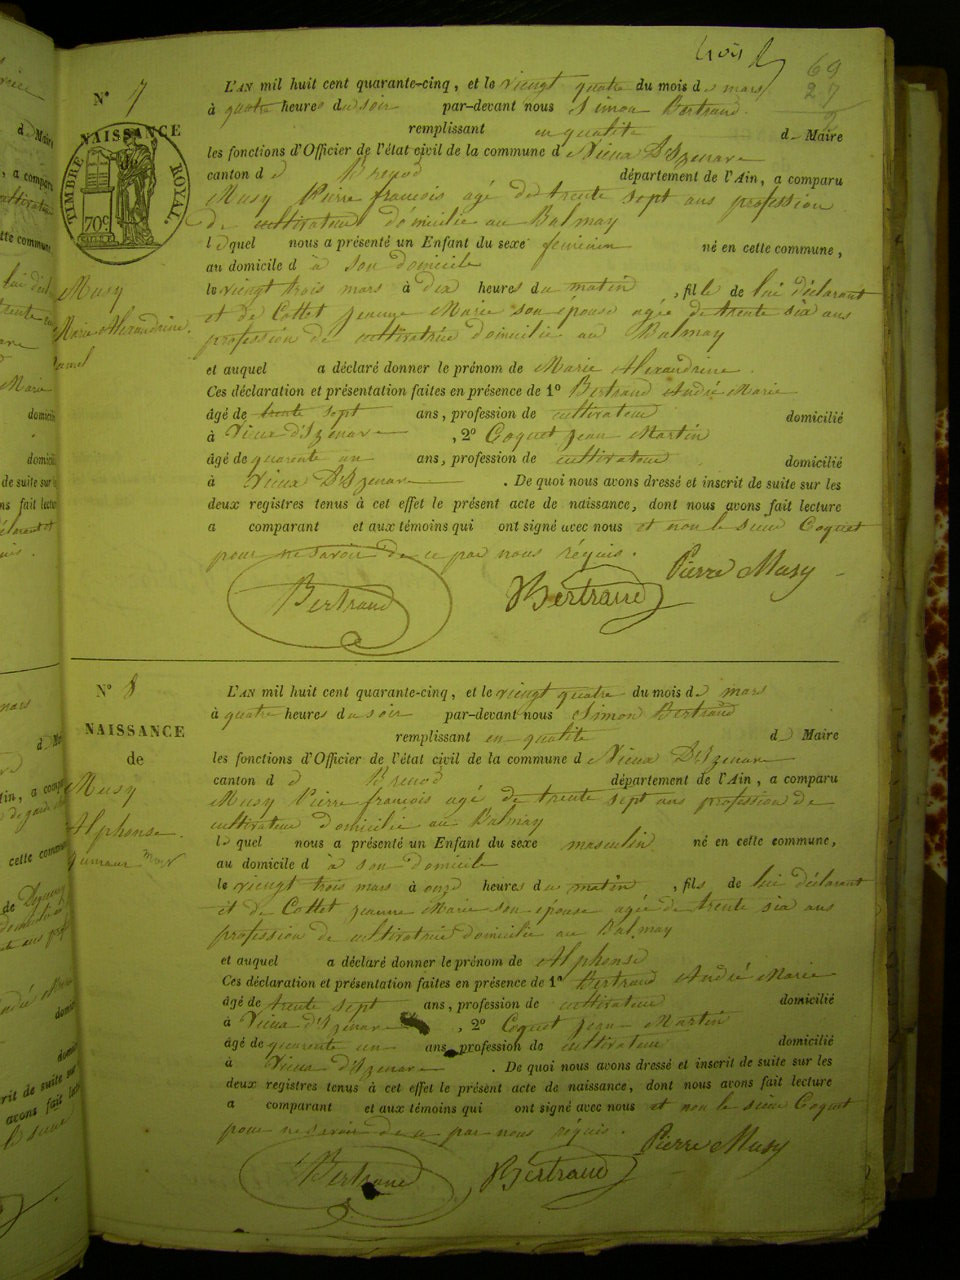 trois
69
27
2
N° 7
NAISSANCE
de
TIMBRE ROYAL.
70c
Musy
Marie Alexandrine.
L'AN mil huit cent quarante-cinq, et le viengt quatre du mois de mars
à quatre heures du soir par-devant nous Simon Bertrand
remplissant en qualité de Maire
les fonctions d'Officier de l'état civil de la commune de Vieux D'Izenave
canton d e Brenod département de l'Ain, a comparu
Musy Pierre francois agé de trente sept ans profession
de cultivateur domicilié au Balmay
lequel nous a présenté un Enfant du sexe feminin né en cette commune,
au domicile d à son domicile
le viengt trois mars à dix heures du matin, fille de lui déclarant
et de Cottet Jeanne Marie son épouse agée de trente six ans
profession de cultivatrice domicilié au Balmay
et auquel a déclaré donner le prénom de Marie Alexandrine
Ces déclaration et présentation faites en présence de 1° Bertrand André Marie
âgé de trente sept ans, profession de cultivateur domicilié
à Vieux d'Izenave, 2° Coquet Jean Martin
âgé de quarente un ans, profession de cultivateur domicilié
à Vieux D'Izenave. De quoi nous avons dressé et inscrit de suite sur les
deux registres tenus à cet effet le présent acte de naissance, dont nous avons fait lecture
a comparant et aux témoins qui ont signé avec nous et non le sieur Coquet
pour ne savoir de ce par nous réquis.
Pierre Musy
Bertrand Bertrand
N° 8
NAISSANCE
de
Musy
Alphonse
L'AN mil huit cent quarante-cinq, et le viengt quatre du mois de mars
à quatre heures du soir par-devant nous Simon Bertrand
remplissant en qualité de Maire
les fonctions d'Officier de l'état civil de la commune de Vieux D'Izenave
canton d e Brenod département de l'Ain, a comparu
Musy Pierre francois agé de trente sept ans profession de
cultivateur domicilié au Balmay
lequel nous a présenté un Enfant du sexe masculin né en cette commune,
au domicile d à son domicile
le viengt trois mars à onze heures du matin, fils de lui déclarant
et de Cottet Jeanne Marie son épouse agée de trente six ans
profession de cultivatrice domicilié au Balmay
et auquel a déclaré donner le prénom de Alphonse
Ces déclaration et présentation faites en présence de 1° Bertrand André Marie
âgé de trente sept ans, profession de cultivateur domicilié
à Vieux d'Izenave, 2° Coquet Jean Martin
âgé de quarente un ans, profession de cultivateur domicilié
à Vieux d'Izenave. De quoi nous avons dressé et inscrit de suite sur les
deux registres tenus à cet effet le présent acte de naissance, dont nous avons fait lecture
a comparant et aux témoins qui ont signé avec nous et non le sieur Coquet
pour ne savoir de ce par nous réquis.
Pierre Musy
Bertrand Bertrand